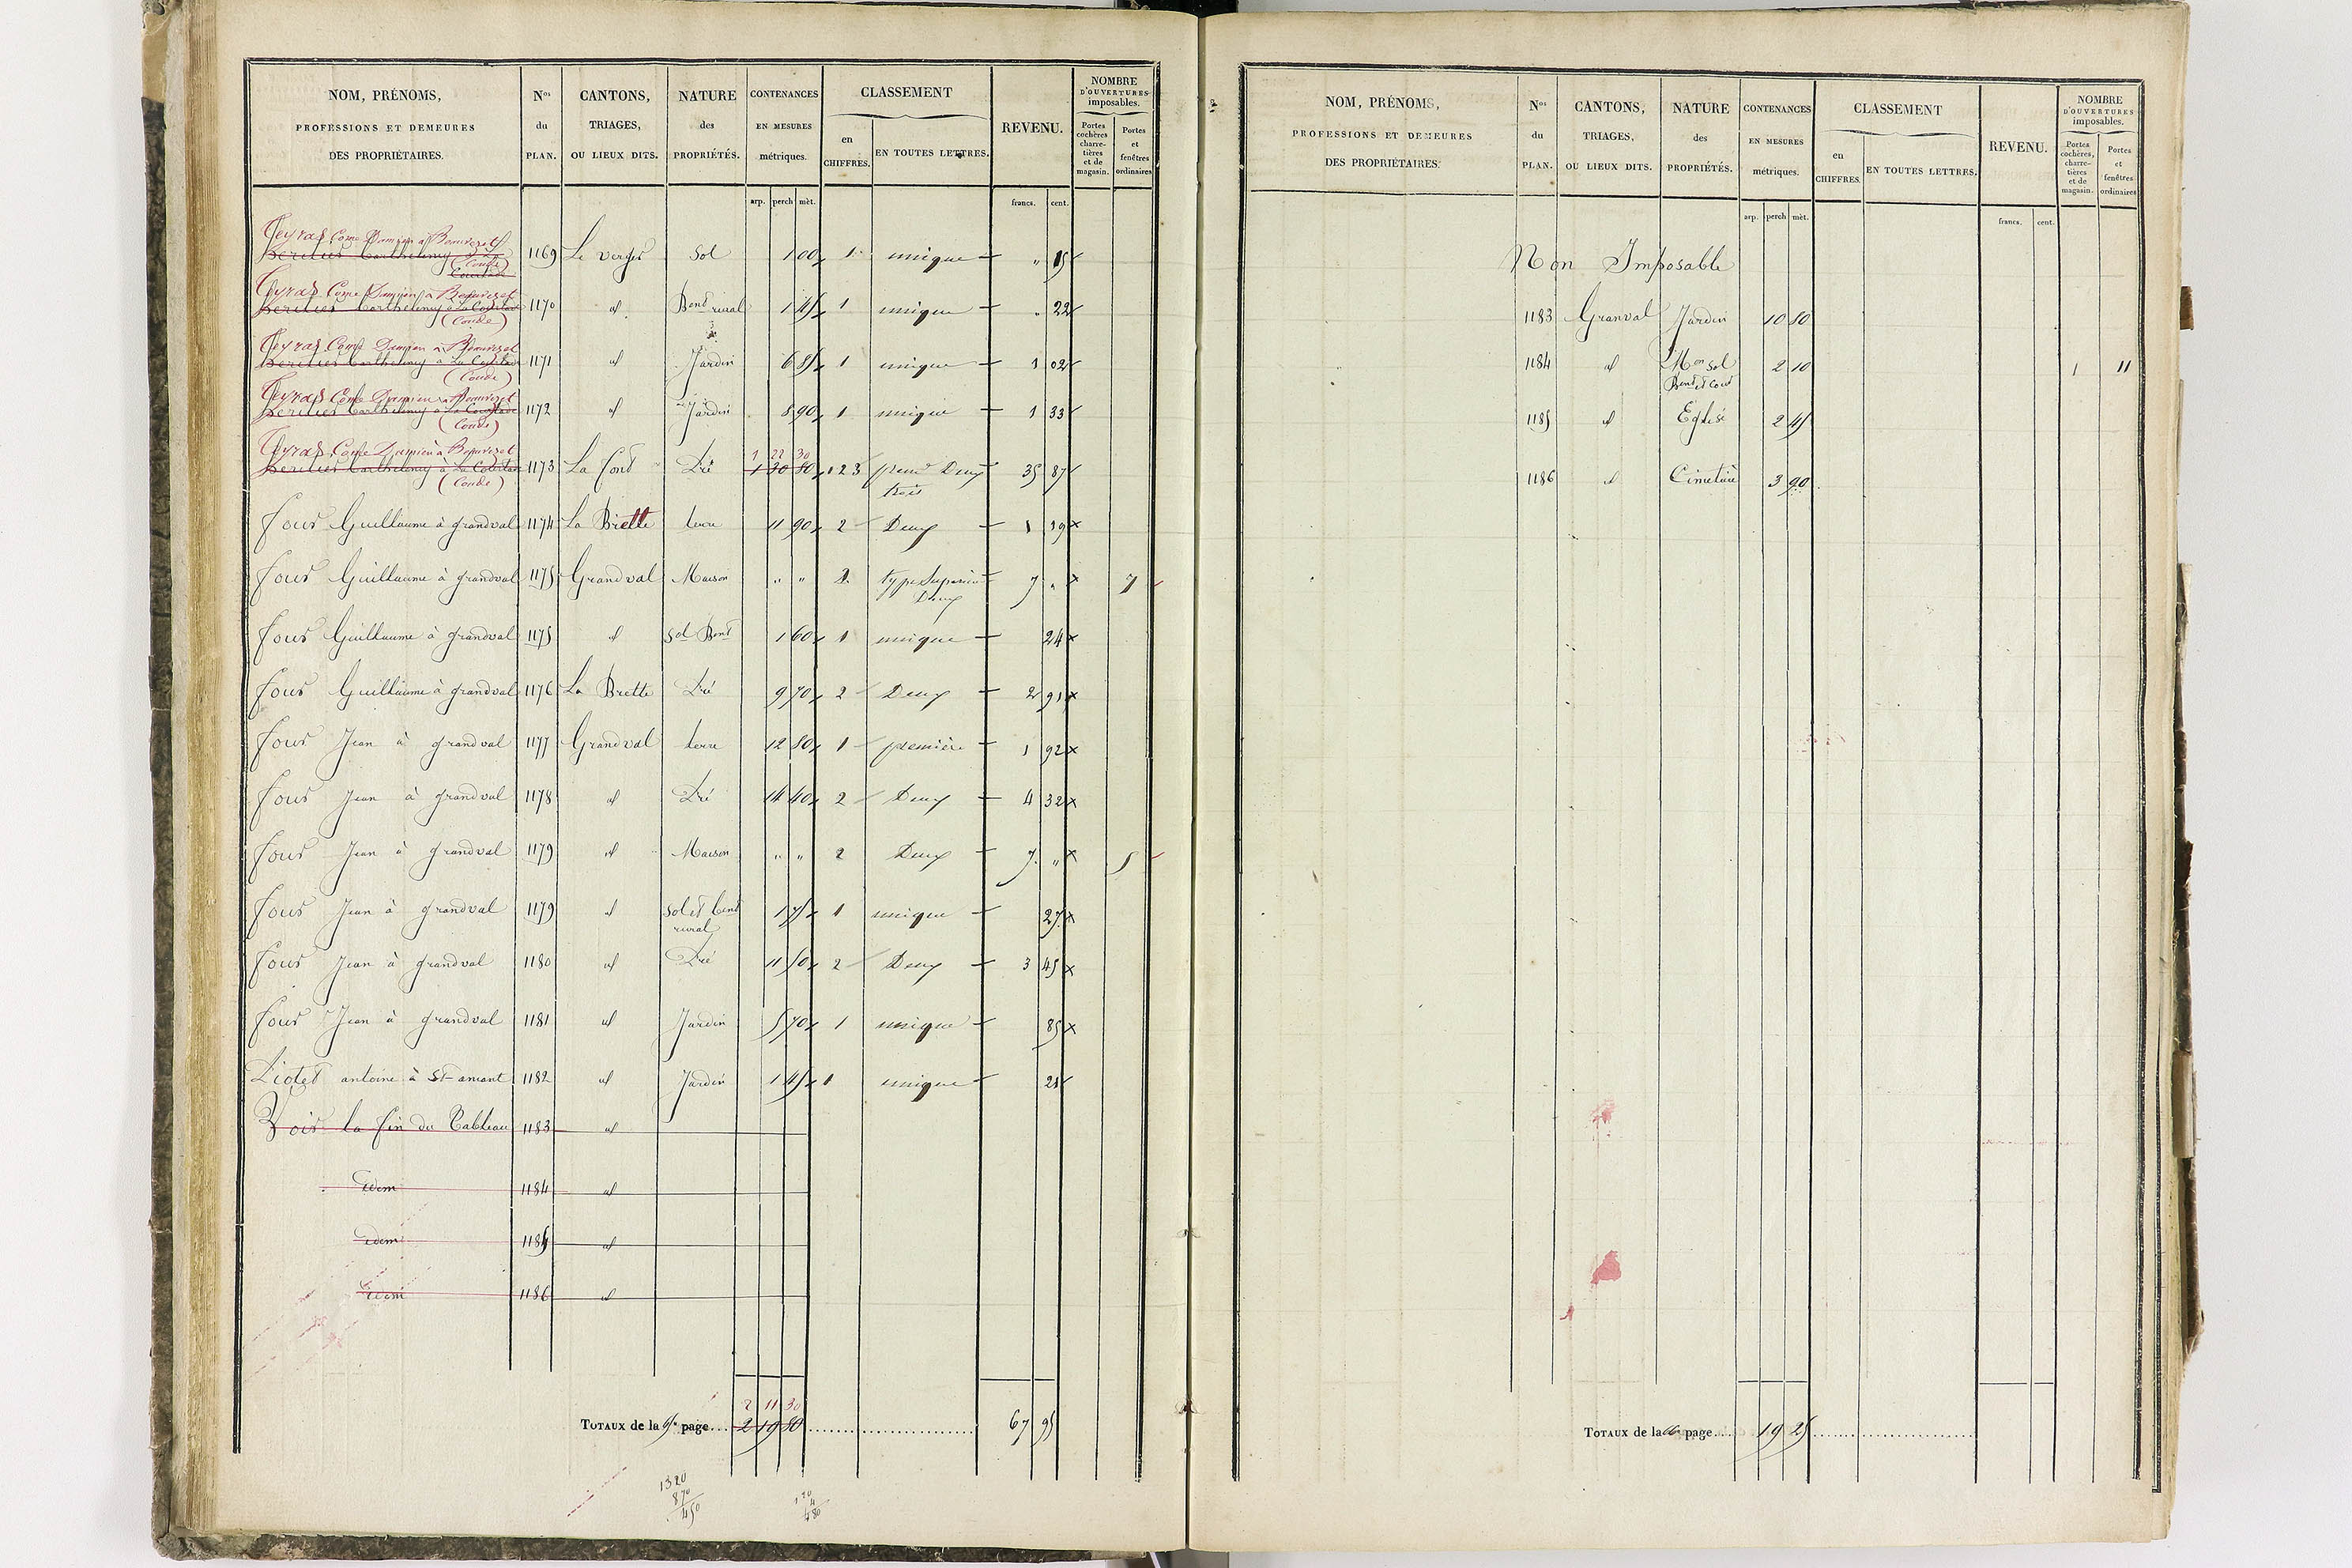 NOM, PRÉNOMS, PROFESSIONS ET DEMEURES DES PROPRIÉTAIRES. | Nos du PLAN. | CANTONS, TRIAGES, OU LIEUX DITS. | NATURE des PROPRIÉTÉS. | CONTENANCES EN MESURES métriques. | CLASSEMENT en CHIFFRES. | EN TOUTES LETTRES. | REVENU. | NOMBRE D'OUVERTURES imposables. | Portes cochères, charretières et de magasin. | Portes et fenêtres ordinaires
arp. perch mèt. francs. cent.
Teyras Come Damien à Beauvezet
(Coude)
1169 Le verger Sol 1 00 1 unique " 15
Teyras Come Damien à Beauvezet
Barthelemy à La
(Coude)
1170 id Bent rural 1 45 1 unique " 22
Teyras Come Damien à Beauvezet
Barthelemy à La
(Coude)
1171 id Jardin 6 85 1 unique 1 02
Teyras Come Damien à Beauvezet
Barthelemy à La
(Coude)
1172 id Jardin 8 90 1 unique 1 33
Teyras Come Damien à Beauvezet 1 22 30
Barthelemy à La 1173 La font Pré 1 30 80 1 2 3 prem Deux 35 87
(Coude) trois
four Guillaume à grandval 1174 La Brette terre 11 90 2 Deux 1 19
four Guillaume à grandval 1175 Grandval Maison " " 2 type Supérieur 7 " 7
Deux
four Guillaume à grandval 1175 id Sol Bent 1 60 1 unique 24
four Guillaume à grandval 1176 La Brette Pré 9 70 2 Deux 2 91
four Jean à grandval 1177 Grandval terre 12 80 1 première 1 92
four Jean à grandval 1178 id Pré 14 40 2 Deux 4 32
four Jean à grandval 1179 id Maison " " 2 Deux 7 " 5
four Jean à grandval 1179 id Sol et bent 1 75 1 unique 27
rural
four Jean à grandval 1180 id Pré 11 50 2 Deux 3 45
four Jean à grandval 1181 id Jardin 5 70 1 unique 85
antoine à St amant 1182 id Jardin 1 45 1 unique 21
Voir la fin du Tableau 1183 id
idem 1184 id
idem 1185 id
idem 1186 id
2 11 30
TOTAUX de la page 2 19 80 67 95
1320
870
450
120
4
480
NOM, PRÉNOMS, PROFESSIONS ET DEMEURES DES PROPRIÉTAIRES. | Nos du PLAN. | CANTONS, TRIAGES, OU LIEUX DITS. | NATURE des PROPRIÉTÉS. | CONTENANCES EN MESURES métriques. | CLASSEMENT en CHIFFRES. | EN TOUTES LETTRES. | REVENU. | NOMBRE D'OUVERTURES imposables. | Portes cochères, charretières et de magasin. | Portes et fenêtres ordinaires
arp. perch mèt. francs. cent.
Non Imposable
1183 Granval Jardin 10 80
1184 id Mon Sol 2 10 1 11
Bent et cour
1185 id Eglise 2 45
1186 id Cimetière 3 90
TOTAUX de la page 19 25